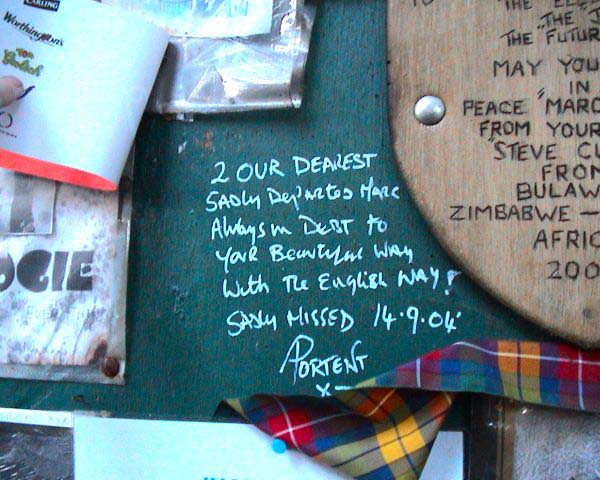 CARLING
Worthington's
Grolsch
OGIE
2 OUR DEAREST
SADLY DEPARTED MARC
Always in DEBT to
YOUR BEAUTIFUL WAY
With The English WAY!
SADLY MISSED 14.9.04
PORTENT
X
TO
THE
THE J
THE "FUTUR
MAY YOU
IN
PEACE "MARC
FROM YOUR
"STEVE CU
FROM
BULAW
ZIMBABWE —
AFRIC
200